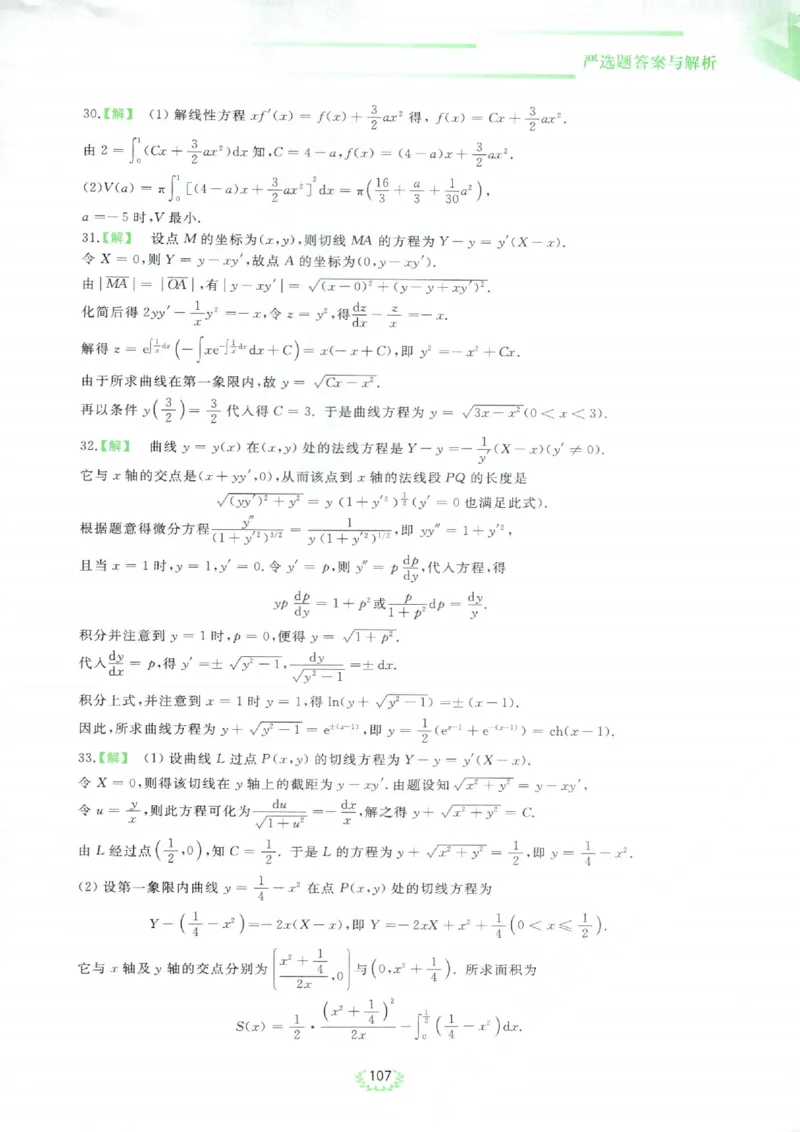 严选题答案与解析
30.【解】 (1) 解线性方程 xf′(x) = f(x) + 3/2 ax² 得, f(x) = Cx + 3/2 ax².
由 2 = ∫₀¹ (Cx + 3/2 ax²)dx 知, C = 4 − a, f(x) = (4 − a)x + 3/2 ax².
(2)V(a) = π∫₀¹ [(4 − a)x + 3/2 ax²]² dx = π(16/3 + a/3 + 1/30 a²),
a = − 5 时, V 最小.
31.【解】 设点 M 的坐标为(x, y), 则切线 MA 的方程为 Y − y = y′(X − x).
令 X = 0, 则 Y = y − xy′, 故点 A 的坐标为(0, y − xy′).
由 |MA| = |OA|, 有 |y − xy′| = √((x − 0)² + (y − y + xy′)²).
化简后得 2yy′ − 1/x y² = − x, 令 z = y², 得 dz/dx − z/x = − x.
解得 z = e^(∫1/x dx) (− ∫xe^(−∫1/x dx) dx + C) = x(− x + C), 即 y² = − x² + Cx.
由于所求曲线在第一象限内, 故 y = √(Cx − x²).
再以条件 y(3/2) = 3/2 代入得 C = 3. 于是曲线方程为 y = √(3x − x²) (0 < x < 3).
32.【解】 曲线 y = y(x) 在(x, y) 处的法线方程是 Y − y = − 1/y′ (X − x)(y′ ≠ 0).
它与 x 轴的交点是(x + yy′, 0), 从而该点到 x 轴的法线段 PQ 的长度是
√((yy′)² + y²) = y (1 + y′²)^(1/2) (y′ = 0 也满足此式).
根据题意得微分方程 y″/(1 + y′²)^(3/2) = 1/(y (1 + y′²)^(1/2)), 即 yy″ = 1 + y′²,
且当 x = 1 时, y = 1, y′ = 0. 令 y′ = p, 则 y″ = p dp/dy, 代入方程, 得
yp dp/dy = 1 + p² 或 p/(1 + p²) dp = dy/y.
积分并注意到 y = 1 时, p = 0, 便得 y = √(1 + p²).
代入 dy/dx = p, 得 y′ = ± √(y² − 1), dy/√(y² − 1) = ± dx.
积分上式, 并注意到 x = 1 时 y = 1, 得 ln(y + √(y² − 1)) = ± (x − 1).
因此, 所求曲线方程为 y + √(y² − 1) = e^(±(x−1)), 即 y = 1/2 (e^(x−1) + e^(−(x−1))) = ch(x − 1).
33.【解】 (1) 设曲线 L 过点 P(x, y) 的切线方程为 Y − y = y′(X − x).
令 X = 0, 则得该切线在 y 轴上的截距为 y − xy′. 由题设知 √(x² + y²) = y − xy′,
令 u = y/x, 则此方程可化为 du/√(1 + u²) = − dx/x, 解之得 y + √(x² + y²) = C.
由 L 经过点 (1/2, 0), 知 C = 1/2. 于是 L 的方程为 y + √(x² + y²) = 1/2, 即 y = 1/4 − x².
(2) 设第一象限内曲线 y = 1/4 − x² 在点 P(x, y) 处的切线方程为
Y − (1/4 − x²) = − 2x(X − x), 即 Y = − 2xX + x² + 1/4 (0 < x ≤ 1/2).
它与 x 轴及 y 轴的交点分别为 ((x² + 1/4)/(2x), 0) 与 (0, x² + 1/4). 所求面积为
S(x) = 1/2 · (x² + 1/4)²/(2x) − ∫₀^(1/2) (1/4 − x²)dx.
107